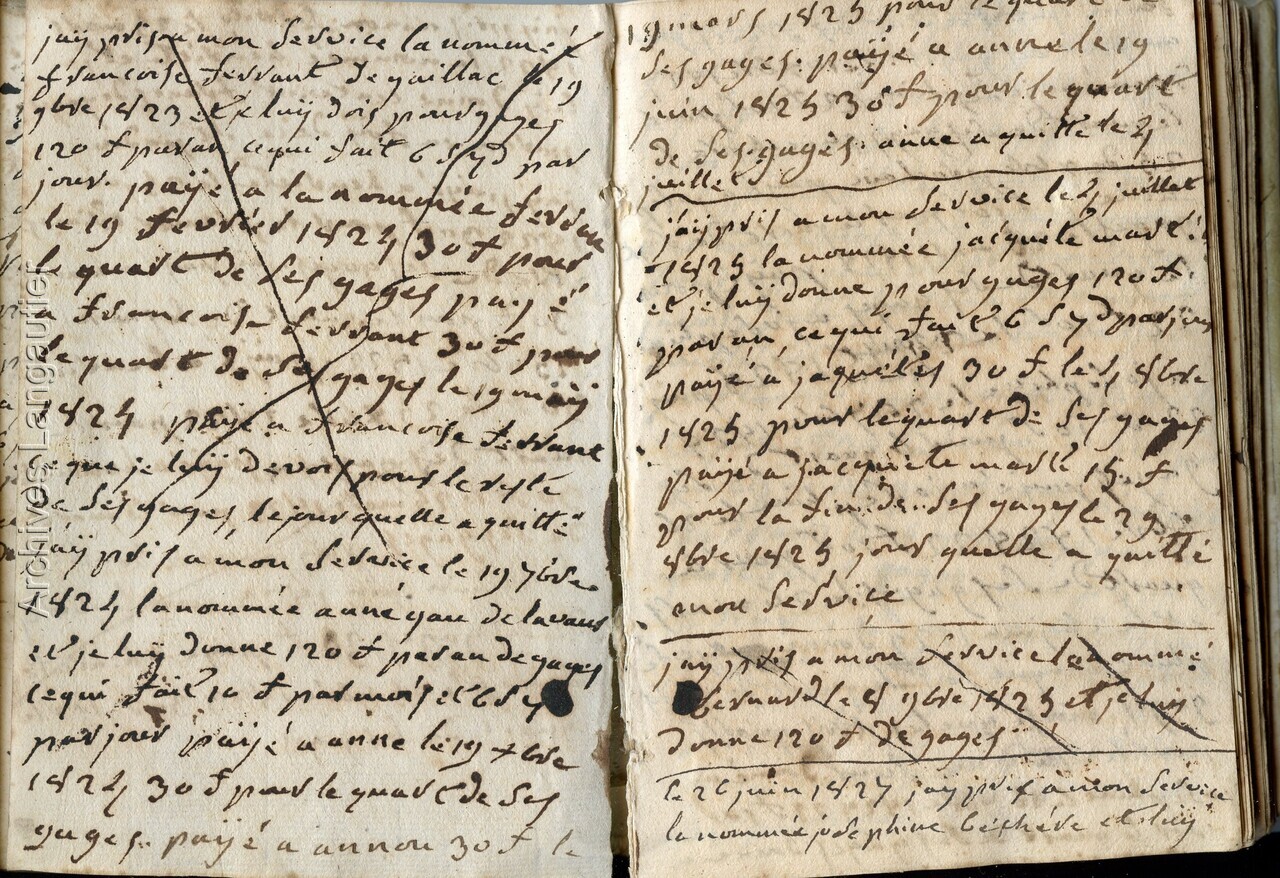 jaÿ pris a mon service la nommé
francoise ferrant de gaillac le 19
9bre 1823 et je luÿ dois pour gages
120 f par an ce qui fait 6 s 7 d par
jour. paÿé a la nommée ferran
le 19 fevrier 1824 30 f pour
le quart de ses gages payé
a francoise ferrant 30 f pour
le quart de ses gages le 19 maÿ
1824 paÿe a francoise ferrant
ce que je luÿ devois pour le resté
de ses gages, le jour quelle a quitté
jaÿ pris a mon service le 19 7bre
1824 la nommée anné gau de lavaur
et je luÿ donne 120 f par an de gages
ce qui fait 10 f par mois et 6 s
par jour paÿé a anne le 19 xbre
1824 30 f pour le quart de ses
gages. paÿé a annou 30 f le
19 mars 1825 pour le quart de
ses gages. paÿé a anne le 19
juin 1825 30 f pour le quart
de ses gages. anne a quitté le 25
juillet
jaÿ pris a mon service le 25 juillet
1825 la nommée jacquete
et je luÿ donne pour gages 120 f
par an, ce qui fait 6 s 7 d par jour
paÿé a jaquetes 30 f le 8bre
1825 pour le quart de ses gages
paÿé a jacquete 15 f
pour la fin de ses gages le 29
8bre 1825 jour quelle a quitté
mon service
jaÿ pris a mon service la nommé
bernard le 8 9bre 1825 et je luy
donne 120 f de gages
le 26 juin 1827 jaÿ pris a mon service
la nommée josephine et luÿ
Archives Langautier